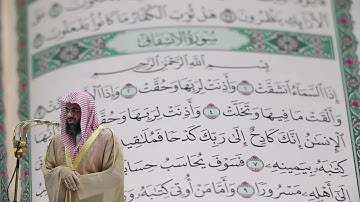 ٱلْأَرَآئِكِ يَنظُرُونَ ۝ هَلْ ثُوِّبَ ٱلْكُفَّارُ مَا كَانُوا۟ يَفْعَلُونَ
سُورَةُ الانشِقَاقِ
بِسْمِ ٱللَّهِ ٱلرَّحْمَٰنِ ٱلرَّحِيمِ
إِذَا ٱلسَّمَآءُ ٱنشَقَّتْ ١ وَأَذِنَتْ لِرَبِّهَا وَحُقَّتْ ٢ وَإِذَا
وَأَلْقَتْ مَا فِيهَا وَتَخَلَّتْ ٤ وَأَذِنَتْ لِرَبِّهَا وَحُقَّتْ
ٱلْإِنسَٰنُ إِنَّكَ كَادِحٌ إِلَىٰ رَبِّكَ كَدْحًا فَمُلَٰقِيهِ
كِتَٰبَهُۥ بِيَمِينِهِۦ ٧ فَسَوْفَ يُحَاسَبُ حِسَابًا
إِلَىٰٓ أَهْلِهِۦ مَسْرُورًا ٩ وَأَمَّا مَنْ أُوتِىَ كِتَٰبَهُۥ